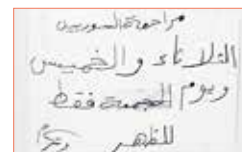 مراجعة السوريين
الثلاثاء والخميس
ويوم الجمعة فقط
للظهر